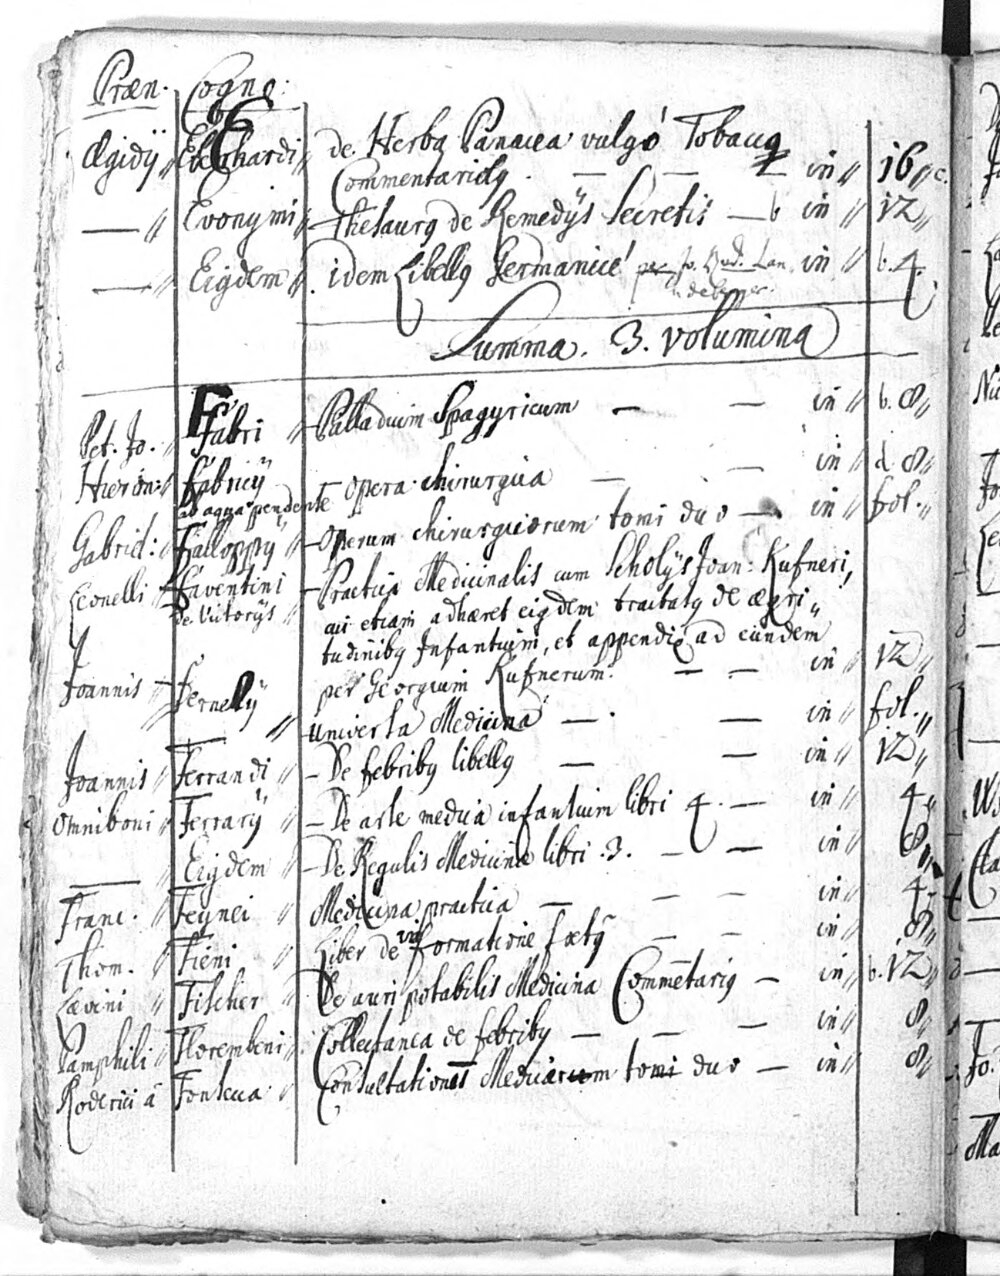 Præn. Cogna:
E
Ægidÿ // Eberhardi // de Herba Panacea vulgò Tobacq
Commentariolq. — — — in // 16 // c.
— // Evonymi // – Thesaurq de Remedÿs Secretis — b in // 12 //
— // Eiqdem // . idem Libellq Germanicè per Jo. Lan. in // b. 4.
Summa. 3. volumina
F
Pet. Jo. // Fabri // – Palladium Spagyricum — — in // b. 8 //
Hieron: // Fabricÿ ab aqua pendente – Opera chirurgica — — in // d 8 //
Gabriel: // Falloppÿ // – Operum chirurgicorum tomi duo — in // fol. //
Leonelli // Faventini de Victorÿs // – Practica Medicinalis cum Scholÿs Joan: Kufneri,
cui etiam adhæret eiqdem tractatq de ægri //
tudinibq Infantium, et appendix ad eundem
per Georgium Kufnerum. — — in // 12 //
Joannis – Fernelÿ // universa Medicina — . — in // fol. //
Joannis // Ferrandi // – De febribq libellq — — in // 12 //
Omniboni // Ferrarÿ // – De arte medica infantium libri 4. — in // 4 //
— // Eiqdem // – De Regulis Medicinæ libri .3. — — in // 8 //
Franc. // Feynei // Medicina practica — — — in // 4 //
Thom. // Fieni // Liber de formatione fœtq — — in // 8 //
Lævini // Fischer // De auri potabilis Medicina Commētariq — in // b. 12 //
Pamphili // Florembeni // Collectanea de febribq — — — in // 8 //
Roderici à Fonseca // Consultationes Medicarum tomi duo — in // 8 //